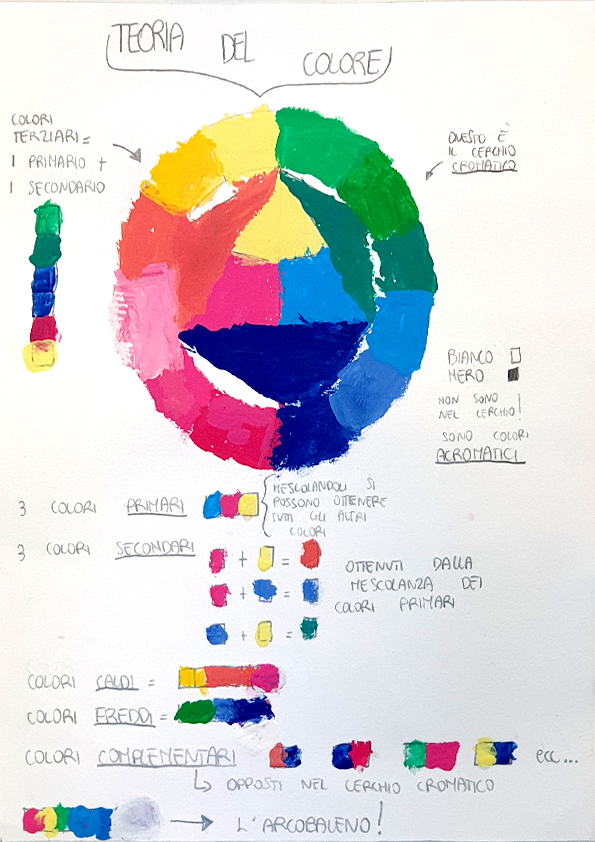 TEORIA DEL COLORE
COLORI
TERZIARI =
1 PRIMARIO +
1 SECONDARIO
QUESTO È
IL CERCHIO
CROMATICO
BIANCO
NERO
NON SONO
NEL CERCHIO!
SONO COLORI
ACROMATICI
3 COLORI PRIMARI
MESCOLANDOLI SI
POSSONO OTTENERE
TUTTI GLI ALTRI
COLORI
3 COLORI SECONDARI
+ =
+ =
+ =
OTTENUTI DALLA
MESCOLANZA DEI
COLORI PRIMARI
COLORI CALDI =
COLORI FREDDI =
COLORI COMPLEMENTARI ecc...
OPPOSTI NEL CERCHIO CROMATICO
L'ARCOBALENO!